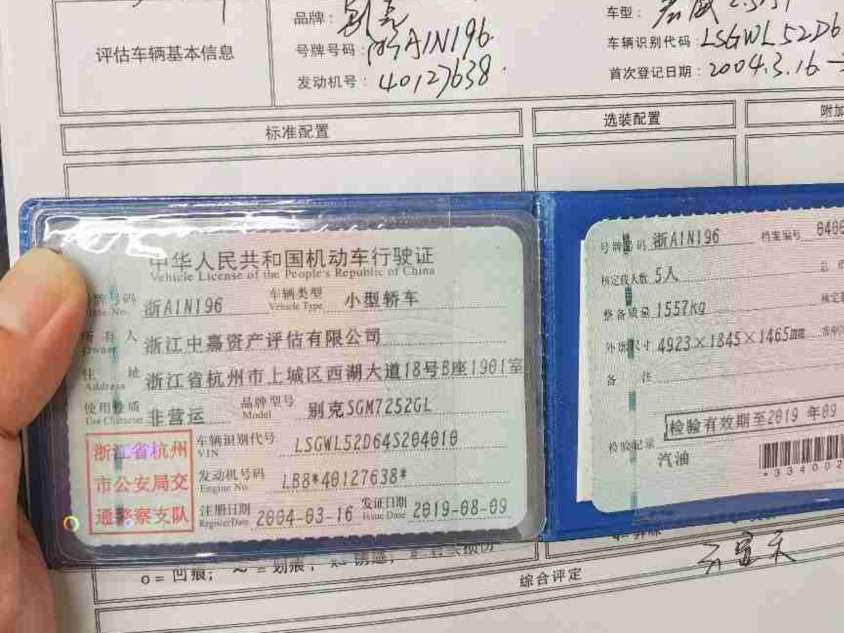 评估车辆基本信息
品牌：别克
号牌号码：浙A1N196
发动机号：40127638
车型：
车辆识别代码：LSGWL52D6
首次登记日期：2004.3.16
标准配置
选装配置
附加
中华人民共和国机动车行驶证
Vehicle License of the People's Republic of China
号牌号码 浙A1N196 车辆类型 Vehicle Type 小型轿车
所有人 Owner 浙江中嘉资产评估有限公司
住址 Address 浙江省杭州市上城区西湖大道18号B座1901室
使用性质 Use Character 非营运 品牌型号 Model 别克SGM7252GL
浙江省杭州
市公安局交
通警察支队
车辆识别代号 VIN LSGWL52D64S204010
发动机号码 Engine No. LB8*40127638*
注册日期 Register Date 2004-03-16 发证日期 Issue Date 2019-08-09
号牌号码 浙A1N196 档案编号
核定载人数 5人
整备质量 1557kg
外廓尺寸 4923×1845×1465
备注
检验有效期至2019年09
检验记录
汽油
*334002
o=凹痕；
综合评定